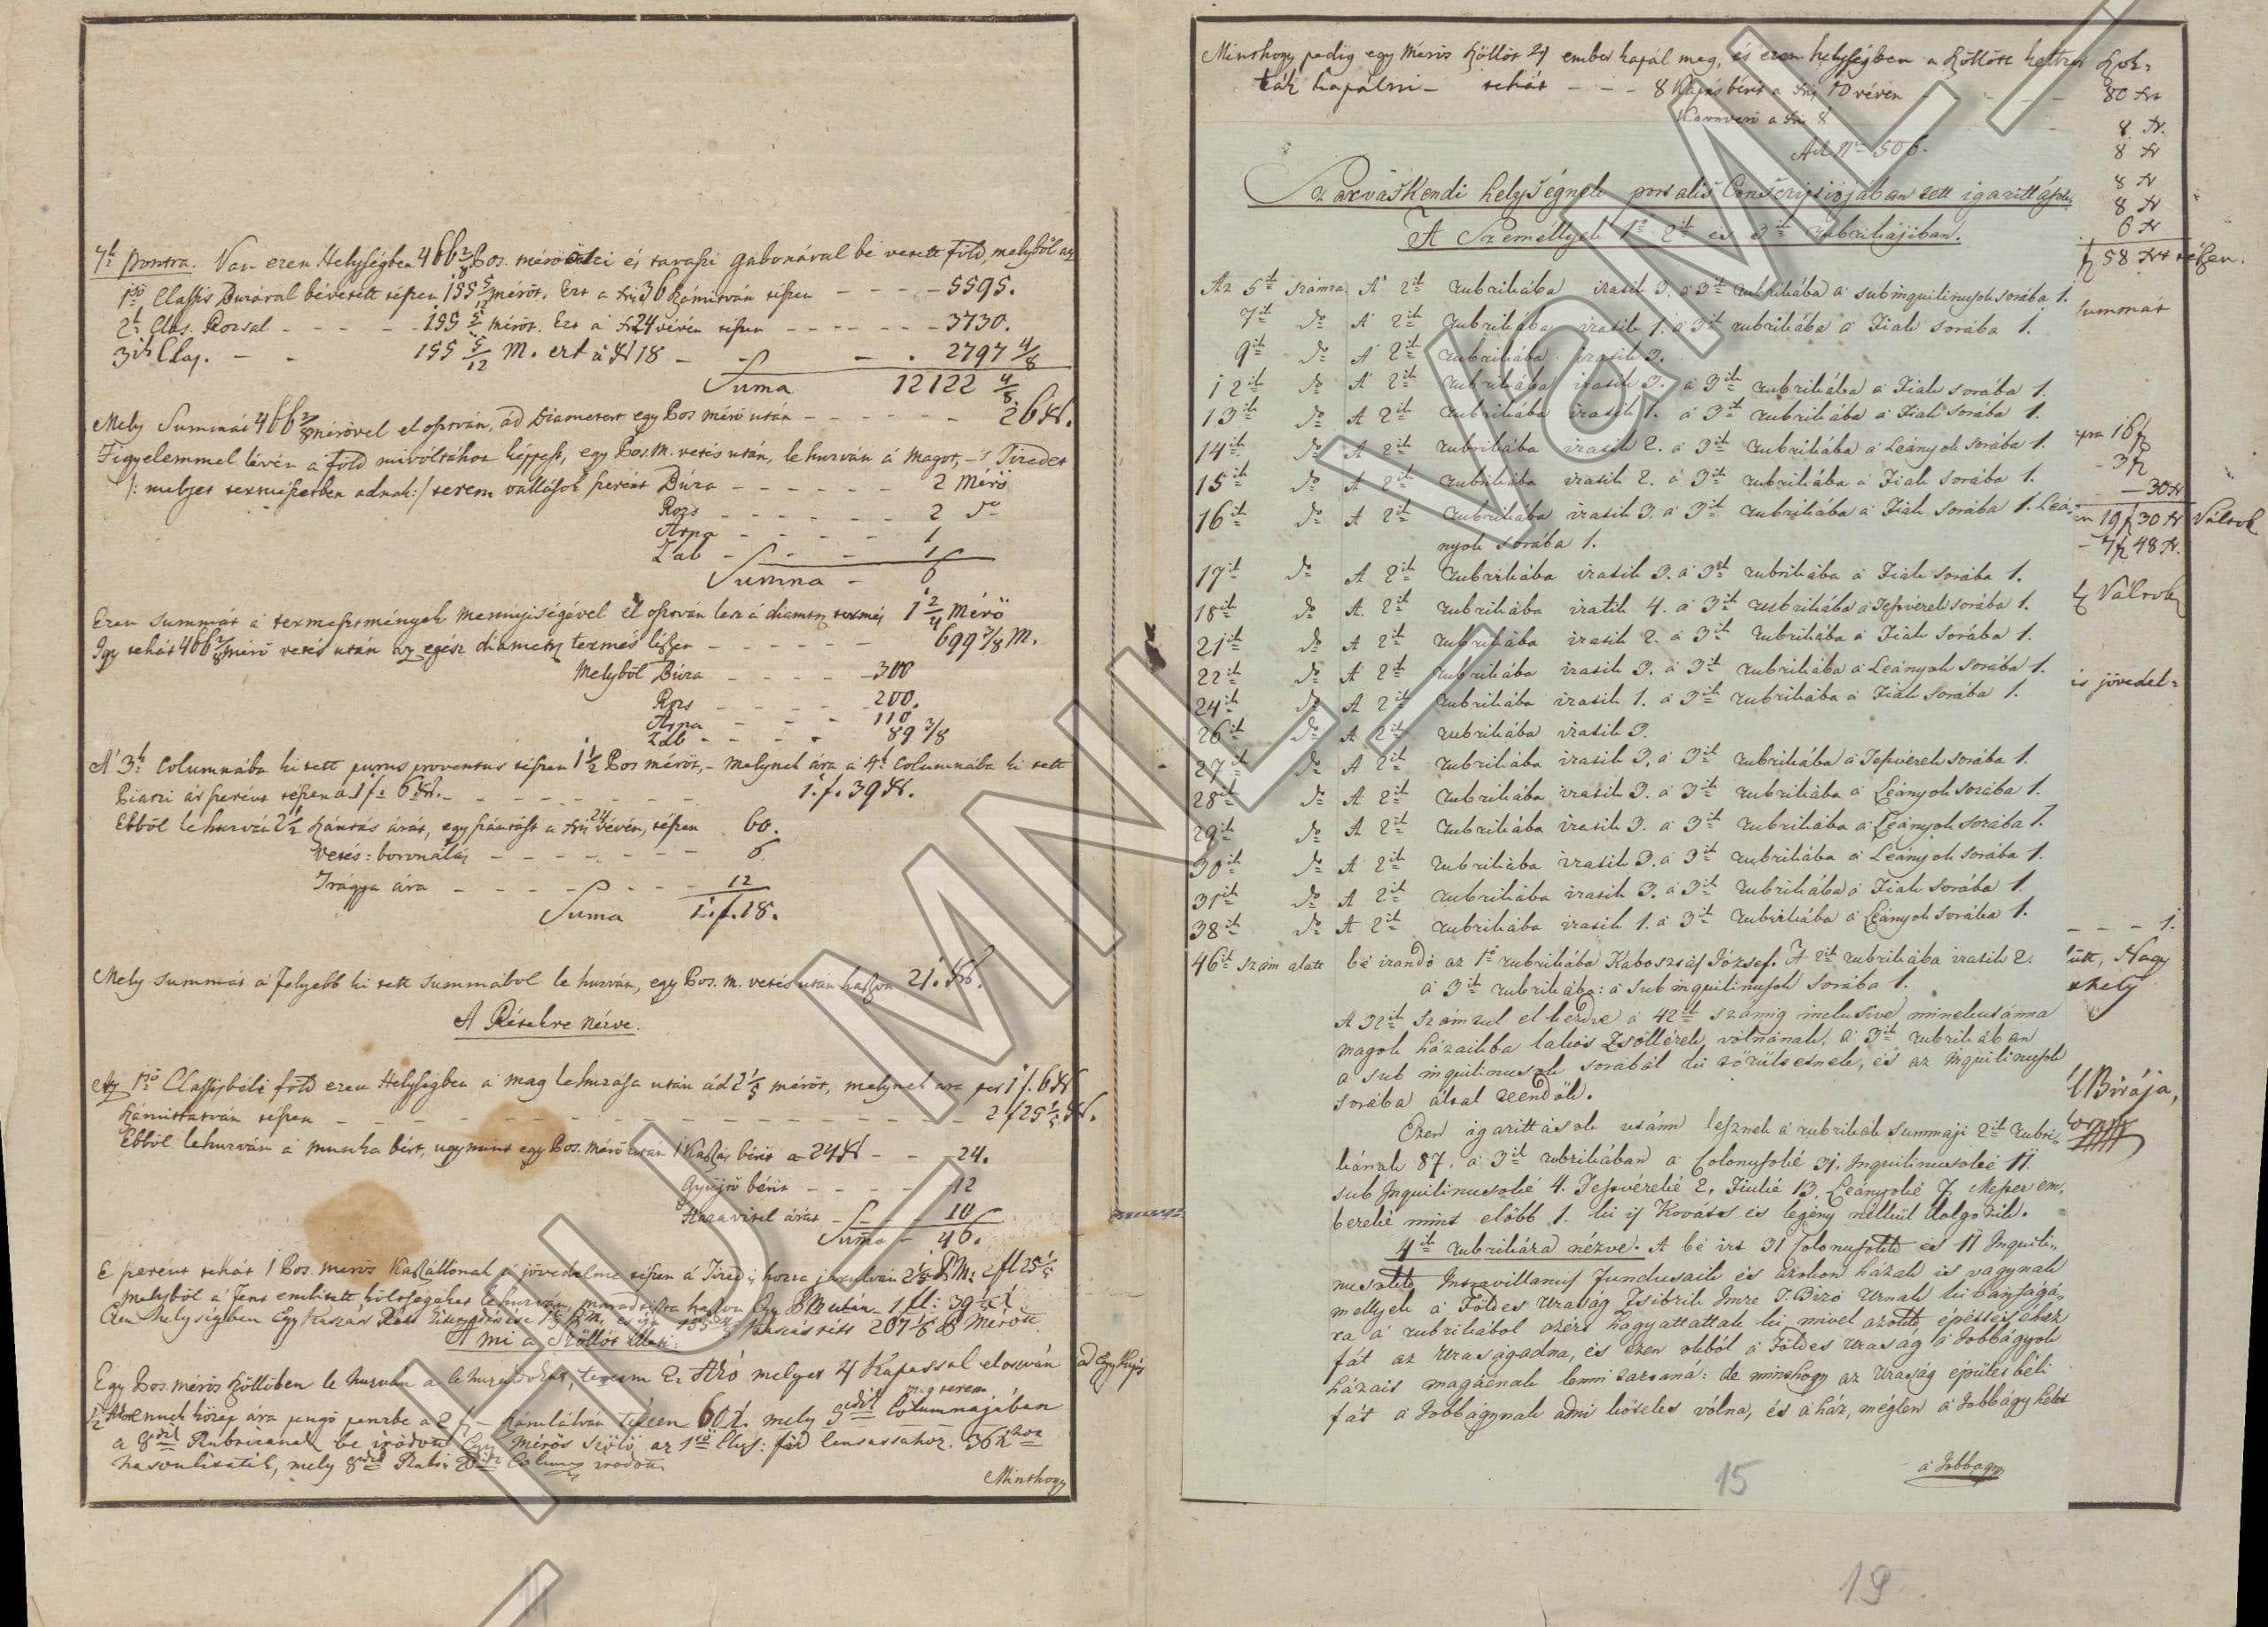 7k pontra. Van ezen Helységben 466 2/8 Pos. mérő őszi és tavaszi gabonával bé vetett föld, melyből az
1ső Classis Búzával bévetett részen 155 5/12 mérőt. Ezt a Xr 36 számítván tészen - - - 5595.
2k Clas. Rozsal - - - 155 5/12 mérőt. Ezt a Xr 24 vévén tészen - - - 3730.
3ik Clas. - - 155 5/12 M. ezt a Xr 18 - - - 2797 4/8
Suma 12122 4/8
Mely Summát 466 2/8 mérővel el osztván, ád Diametert egy Pos mérő után - - - 26 Xr.
Figyelemmel lévén a föld mivóltához képpest, egy Pos. M. vetés után, le huzván á magot, - 's Tizedet
/: melyet termésetben adnak :/ terem vallások szerént Búza - - - 2 Mérő
Rozs - - - 2 do
Árpa - - - 1
Zab - - - 1
Summa - 6
Ezen summát a termesztmények mennyiségével el osztván lesz á diametz. termés 1 2/4 Mérő
Igy tehát 466 2/8 mérő vetés után az egész diametz. termés lészen - - - 699 3/8 M.
Melyből Búza - - - 300
Rozs - - - 200.
Árpa - - - 110
Zab - - - 89 3/8
A' 3k Columnába ki tett purus proventus tészen 1 1/2 Pos mérőt, - melynek ára a 4k Columnába ki tett
Piaczi ár szerént tészen a 1 f. 6 Xr. - - - 1. f. 39 Xr.
Ebből le huzván 2 1/2 szántás árát, egy szántást a Xr 24 vévén, tészen 60.
Vetés = boronálás - - - 6.
Trágya ára - - - 12
Suma 1. f. 18.
Mely summát a felyebb ki tett summából le huzván, egy Pos. m. vetés után haszon 21. Xr.
A Rétekre Nézve.
Az 1ső Classisbéli föld ezen Helységben a mag lehuzása után ád 2 1/5 mérőt, melynek ára per 1 f. 6 Xr
számittatván tészen - - - 2 f 25 1/5 Xr.
Ebből lehuzván a munka bért, ugymint egy Pos. mérő után 1 Kaszás bérit a 24 Xr - - 24.
Gyüjtő bérit - - - 12
Haza vitel árát - - - 10
Suma - 46.
E szerént tehát 1 Pos. mérős Kaszállónak jövedelme tészen
melyből a fent emlitett költségeket lehuzván, marad tiszta haszon Egy PM után - 1 fl: 39
Ezen helységben Egy Kaszás Rét
A mi a Szöllőt illeti.
Egy Pos. mérős szöllőben le huzván a le huzandokat, terem 2 Akó melyet 4 Kapással elosztván ád Egy Kapás
1/2 Akót ennek közép ára pengő pénzbe a 2 f - számlálván tészen 60 X. mely 3dik Columnájában
a 8dik Rubricanak be iródott Egy mérős szőlő, az 1ső Clas: föld
hasonlittatik, mely 8dik Rubr:
Minthogy
Minthogy pedig egy Mérős szöllőt 4 ember kapál meg, és ezen helységben a szöllőt kettszer szok=
ták kapálni - tehát - - - 8 Kapás bérit a Xr 10 vévén - - - 80 Xr
Karoverő a Xr 8 8 Xr.
8 Xr
8 Xr
8 Xr
6 Xr
f 58 Xrt tészen.
Ad Nro 506.
Szarvas Kendi helységnek portalis Conscriptiojában tett igazittások
A Személlyek 1ő 2ik és 3ik rubrikájiban.
Az 5ik számra A' 2ik rubrikába iratik 3. a 3ik rubrikába a subinquilinusok sorába 1.
7ik do A' 2ik rubrikába iratik 1. a 3ik rubrikába a Fiak sorába 1.
9ik do A' 2ik rubrikába iratik 3.
12ik do A' 2ik rubrikába iratik 3. a 3ik rubrikába a Fiak sorába 1.
13ik do A 2ik rubrikába iratik 1. a 3ik rubrikába a Fiak sorába 1.
14ik do A 2ik rubrikába iratik 2. a 3ik rubrikába a Leányok sorába 1.
15ik do A 2ik rubrikába iratik 2. a 3ik rubrikába a Fiak sorába 1.
16ik do A 2ik rubrikába iratik 3. a 3ik rubrikába a Fiak sorába 1. Leá=
nyok sorába 1.
17ik do A 2ik rubrikába iratik 3. a 3ik rubrikába a Fiak sorába 1.
18ik do A 2ik rubrikába iratik 4. a 3ik rubrikába a Testvérek sorába 1.
21ik do A 2ik rubrikába iratik 2. a 3ik rubrikába a Fiak sorába 1.
22ik do A 2ik rubrikába iratik 3. a 3ik rubrikába a Leányok sorába 1.
24ik do A 2ik rubrikába iratik 1. a 3ik rubrikába a Fiak sorába 1.
26ik do A 2ik rubrikába iratik 3.
27ik do A 2ik rubrikába iratik 3. a 3ik rubrikába a Testvérek sorába 1.
28ik do A 2ik rubrikába iratik 3. a 3ik rubrikába a Leányok sorába 1.
29ik do A 2ik rubrikába iratik 3. a 3ik rubrikába a Leányok sorába 1.
30ik do A 2ik rubrikába iratik 3. a 3ik rubrikába a Leányok sorába 1.
31ik do A 2ik rubrikába iratik 3. a 3ik rubrikába a Fiak sorába 1.
38ik do A 2ik rubrikába iratik 1. a 3ik rubrikába a Leányok sorába 1.
46ik szám alatt bé irandó az 1ő rubrikába József. A 2ik rubrikába iratik 2.
a 3ik rubrikába: a sub inquilinusok sorába 1.
A 32ik számtul el kezdve a 42ik számig inclusive minekutánna
magok házaikba lakós Zsöllérek volnának, a 3ik rubrikában
a sub inquilinusok sorábál ki törültetnek, és az inquilinusok
sorába által tevődök.
Ezen igazittások utánn lesznek a rubrikák summáji 2ik rubri=
kának 87. a 3ik rubrikában a Colonusoké 31, Inquilinusoké 11.
sub Inquilinusoké 4. Testvéreké 2. Fiuké 13. Leányoké 7. Mester em=
bereké mint előbb 1. ki is Kováts és legény nélkül dolgozik.
4ik rubrikára nézve. A bé irt 31 Colonusok és 11 Inquili=
nusok Intravillanus Fundusaik és azokon házak is vagynak
mellyek a Földes Uraság Tsibrik Imre T. Biró Urnak kivánságá=
ra a' rubrikából azért hagyattattak ki, mivel azok épéttéséhez
fát az Uraság adna, és ezen okból a Földes Uraság a Jobbágyok
házait magáénak lenni tartaná: de minthogy az Uraság épületbéli
fát a Jobbágynak adni köteles vólna, és a ház, mégten a Jobbágy
a Jobbagy
summát
16 f
- 3 f
- 30 Xr
19 f 30 Xr Váltob
- 7 f 48 Xr.
f Váltob
is jövedel=
- - - 1.
ütt, Nagy
Birája,
15
19
HU MNL
VaML